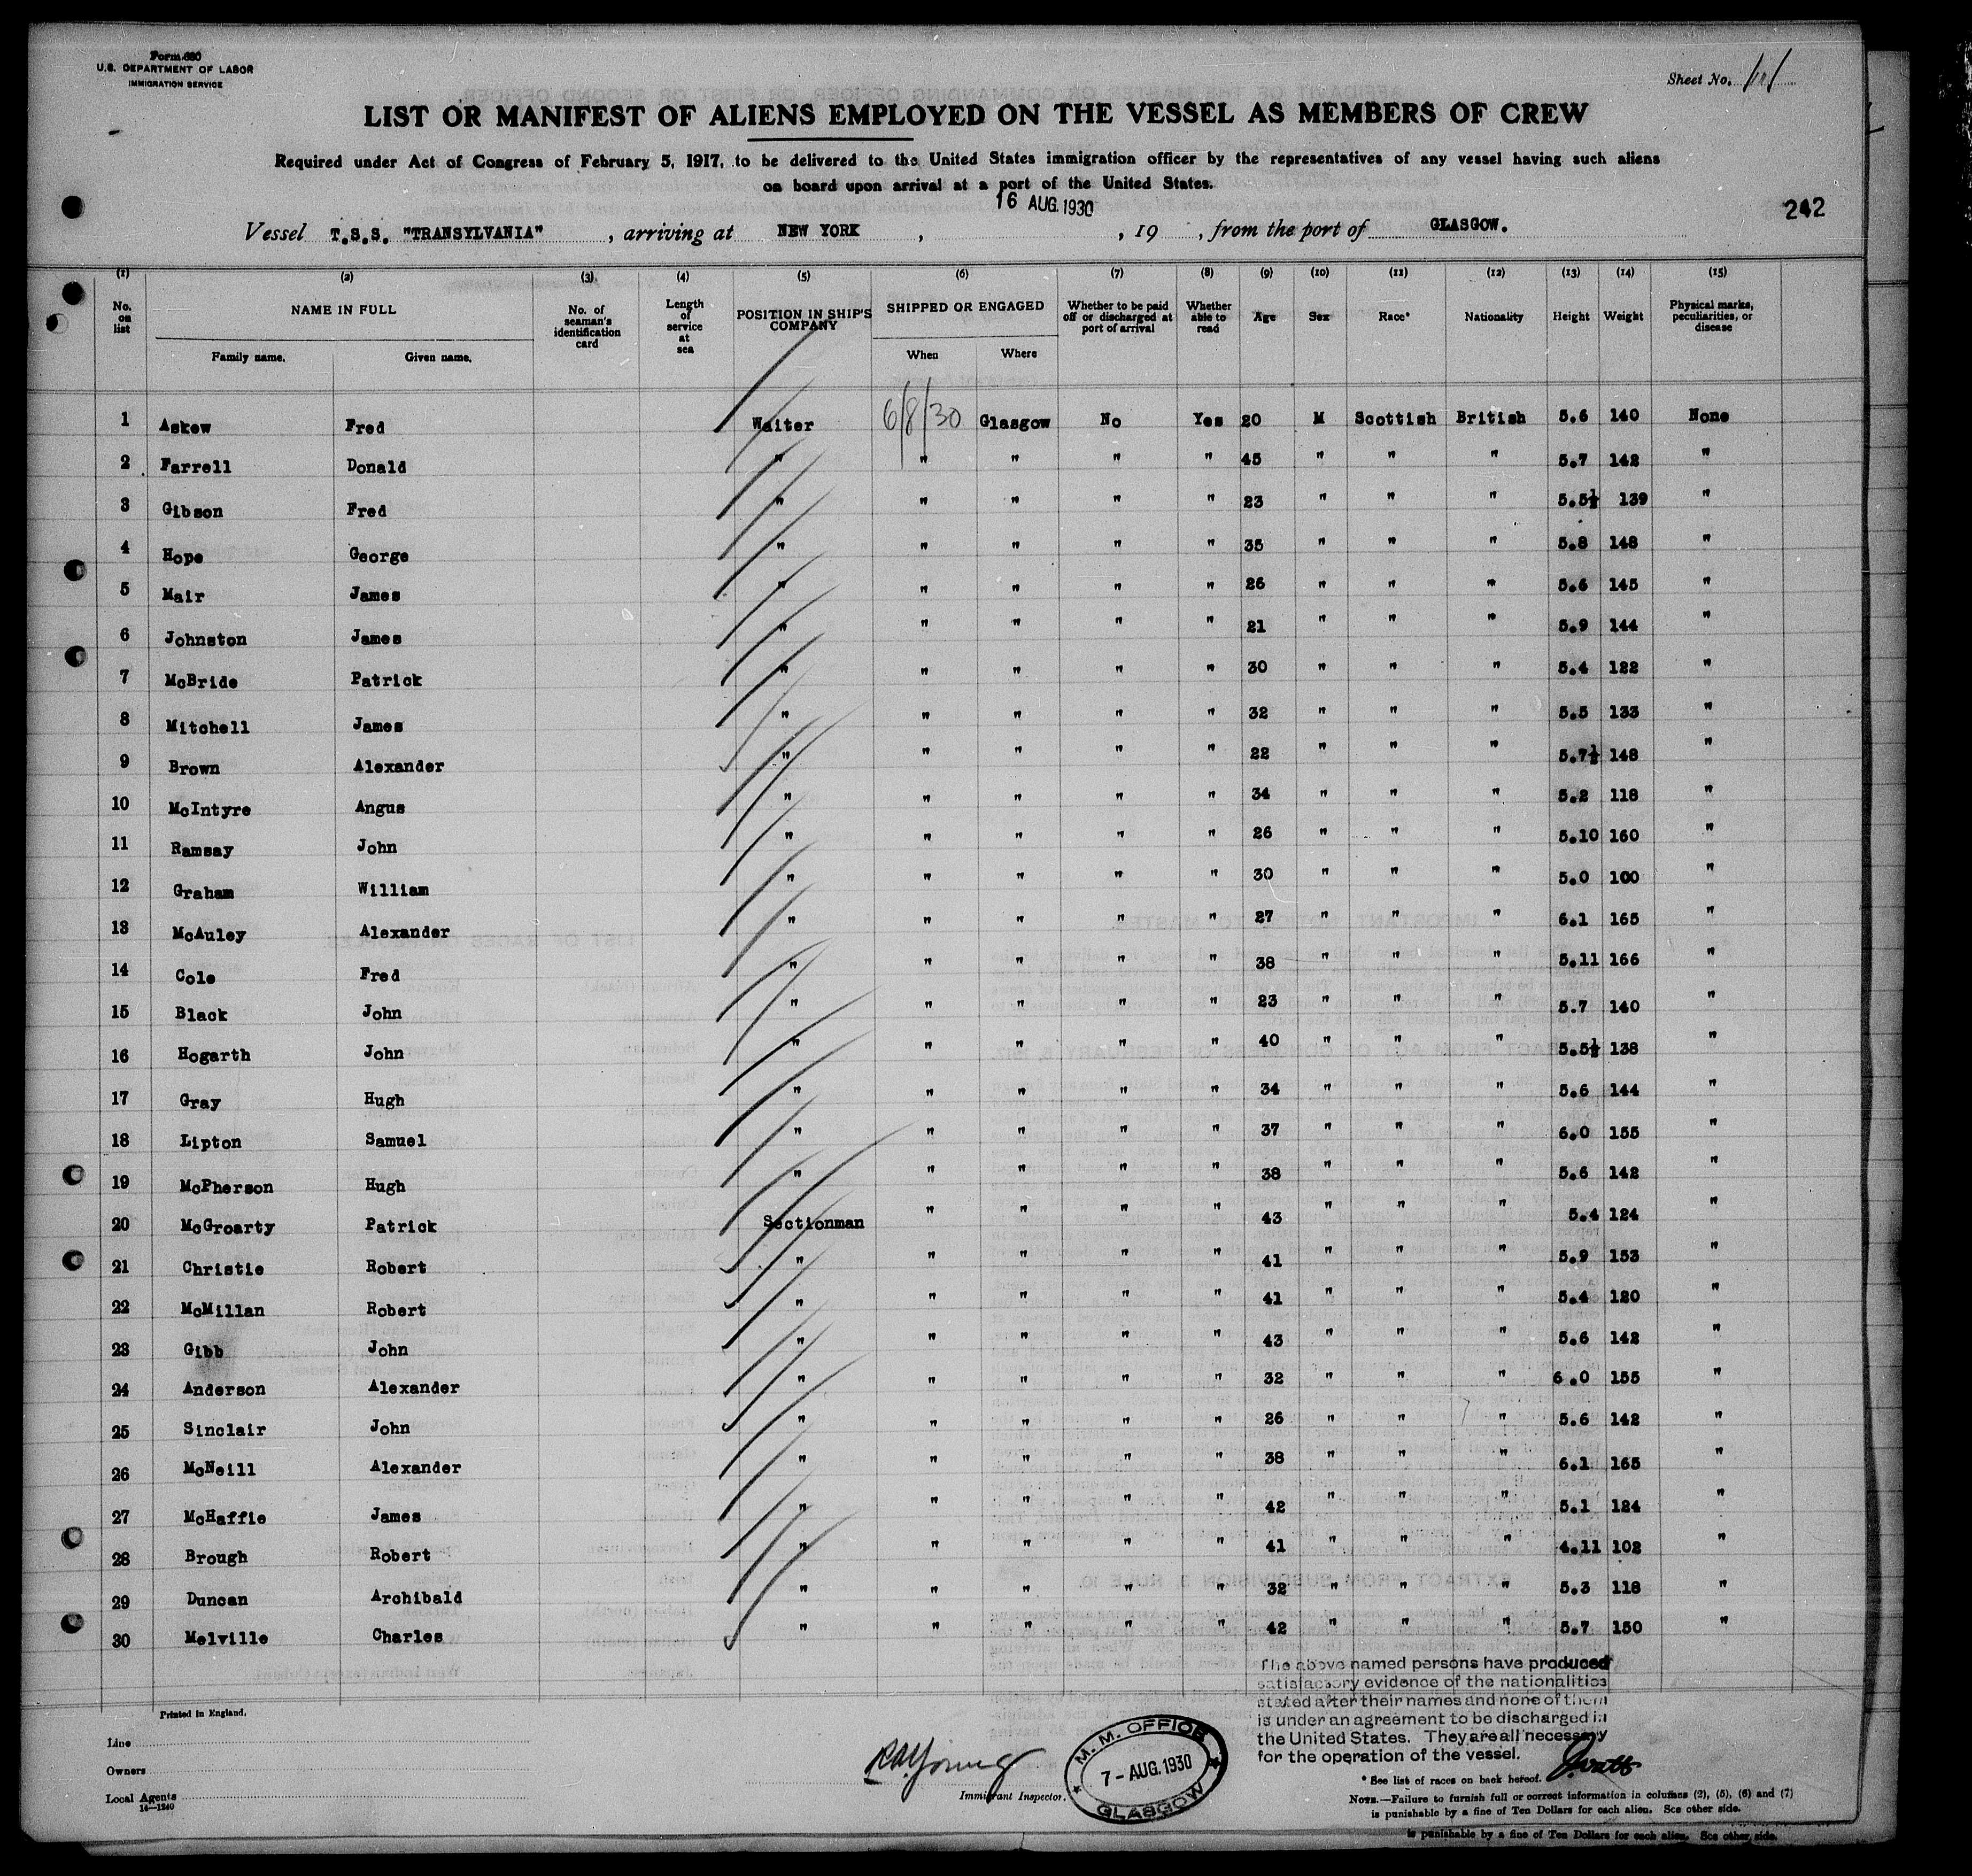 Form 680
U.S. DEPARTMENT OF LABOR
IMMIGRATION SERVICE
Sheet No.
LIST OR MANIFEST OF ALIENS EMPLOYED ON THE VESSEL AS MEMBERS OF CREW
Required under Act of Congress of February 5, 1917, to be delivered to the United States immigration officer by the representatives of any vessel having such aliens
on board upon arrival at a port of the United States.
16 AUG. 1930
242
Vessel T.S.S. "TRANSYLVANIA" , arriving at NEW YORK , , 19 , from the port of GLASGOW.
(1) (2) (3) (4) (5) (6) (7) (8) (9) (10) (11) (12) (13) (14) (15)
No. on list NAME IN FULL Family name. Given name. No. of seaman's identification card Length of service at sea POSITION IN SHIP'S COMPANY SHIPPED OR ENGAGED When Where Whether to be paid off or discharged at port of arrival Whether able to read Age Sex Race* Nationality Height Weight Physical marks, peculiarities, or disease
1 Askew Fred Waiter 6/8/30 Glasgow No Yes 20 M Scottish British 5.6 140 None
2 Farrell Donald " " " " " 45 " " " 5.7 142 "
3 Gibson Fred " " " " " 23 " " " 5.5½ 139 "
4 Hope George " " " " " 35 " " " 5.8 148 "
5 Mair James " " " " " 26 " " " 5.6 145 "
6 Johnston James " " " " " 21 " " " 5.9 144 "
7 McBride Patrick " " " " " 30 " " " 5.4 122 "
8 Mitchell James " " " " " 32 " " " 5.5 133 "
9 Brown Alexander " " " " " 22 " " " 5.7½ 148 "
10 McIntyre Angus " " " " " 34 " " " 5.2 118 "
11 Ramsay John " " " " " 26 " " " 5.10 160 "
12 Graham William " " " " " 30 " " " 5.0 100 "
13 McAuley Alexander " " " " " 27 " " " 6.1 165 "
14 Cole Fred " " " " " 38 " " " 5.11 166 "
15 Black John " " " " " 23 " " " 5.7 140 "
16 Hogarth John " " " " " 40 " " " 5.5½ 138 "
17 Gray Hugh " " " " " 34 " " " 5.6 144 "
18 Lipton Samuel " " " " " 37 " " " 6.0 155 "
19 McPherson Hugh " " " " " 38 " " " 5.6 142 "
20 McGroarty Patrick Sectionman " " " " 43 " " " 5.4 124 "
21 Christie Robert " " " " " 41 " " " 5.9 153 "
22 McMillan Robert " " " " " 41 " " " 5.4 120 "
23 Gibb John " " " " " 43 " " " 5.6 142 "
24 Anderson Alexander " " " " " 32 " " " 6.0 155 "
25 Sinclair John " " " " " 26 " " " 5.6 142 "
26 McNeill Alexander " " " " " 38 " " " 6.1 165 "
27 McHaffie James " " " " " 42 " " " 5.1 124 "
28 Brough Robert " " " " " 41 " " " 4.11 102 "
29 Duncan Archibald " " " " " 32 " " " 5.3 118 "
30 Melville Charles " " " " " 42 " " " 5.7 150 "
The above named persons have produced
satisfactory evidence of the nationalities
stated after their names and none of them
is under an agreement to be discharged in
the United States. They are all necessary
for the operation of the vessel.
Printed in England.
Line
Owners
Local Agents
14—1240
Immigrant Inspector.
M. M. OFFICE
7 - AUG. 1930
GLASGOW
* See list of races on back hereof.
NOTE.—Failure to furnish full or correct information in columns (2), (5), (6) and (7)
is punishable by a fine of Ten Dollars for each alien. See other side.
is punishable by a fine of Ten Dollars for each alien. See other side.